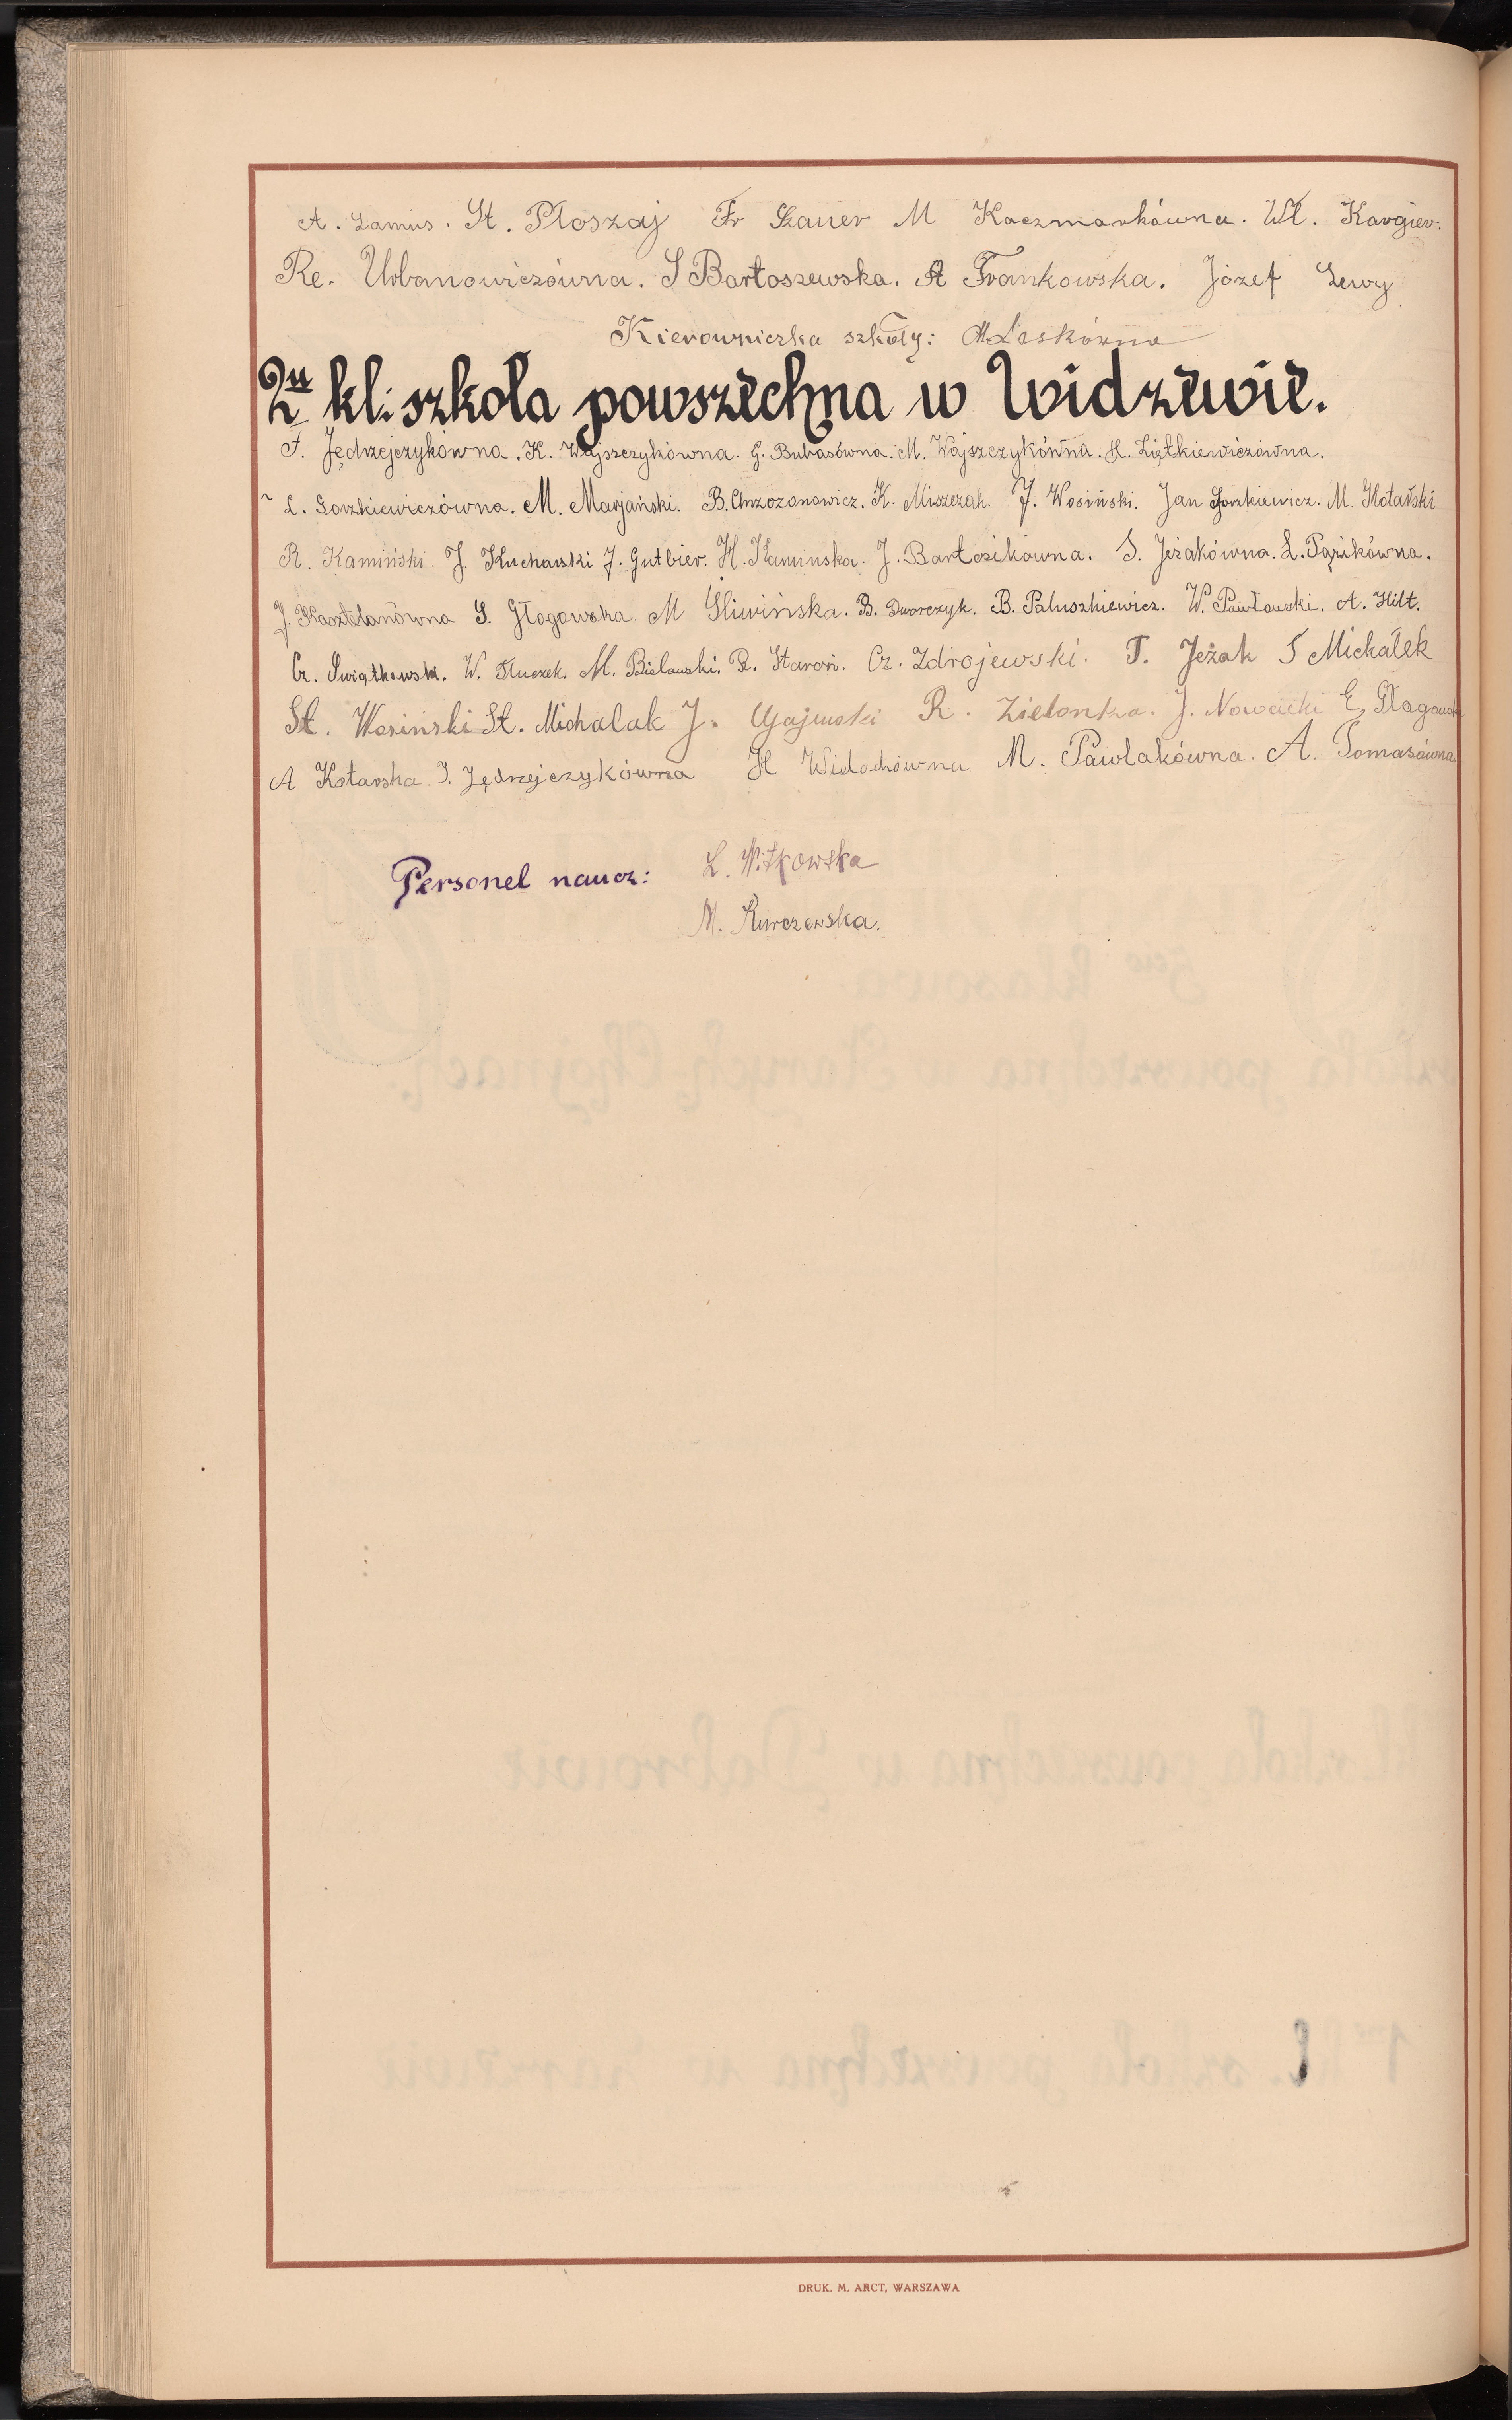 A. Lamus. St. Płoszaj Fr Szauer M Kaczmarkówna. Wł. Kargier.
Re. Urbanowiczówna. S Bartoszewska. A Frankowska. Józef Lewy
Kierowniczka szkoły: M Laskówna
2u kl: szkoła powszechna w Widzewie.
F. Jędrzejczykówna. K. Wojszczykówna. G. Bubasówna. M. Wojszczykówna. H. Ziętkiewiczówna.
L. Gorzkiewiczówna. M. Marjański. B. Chrzozonowicz. K. Miszczak. J. Wosiński. Jan Gorzkiewicz. M. Kotarski
R. Kamiński. J. Kucharski J. Gutbier. H. Kaminska. J. Bartczikówna. S. Jeżakówna. L. Pązikówna.
J. Kasztelanówna S. Głogowska. M Śliwińska. B. Dworczyk. B. Paluszkiewicz. W. Pawłowski. A. Hilt.
Cz. Świątkowski. W. Tłuczek. M. Bielawski. R. Staroń. Cz. Zdrojewski. T. Jeżak S Michałek
St. Wosiński St. Michalak J. Gajewski R. Zielonka. J. Nowacki E. Głogowska
A Kotarska. J. Jędrzejczykówna H Widochówna M. Pawlakówna. A. Tomasówna
Personel naucz: L. Witkowska
M. Kurczewska.
DRUK. M. ARCT, WARSZAWA